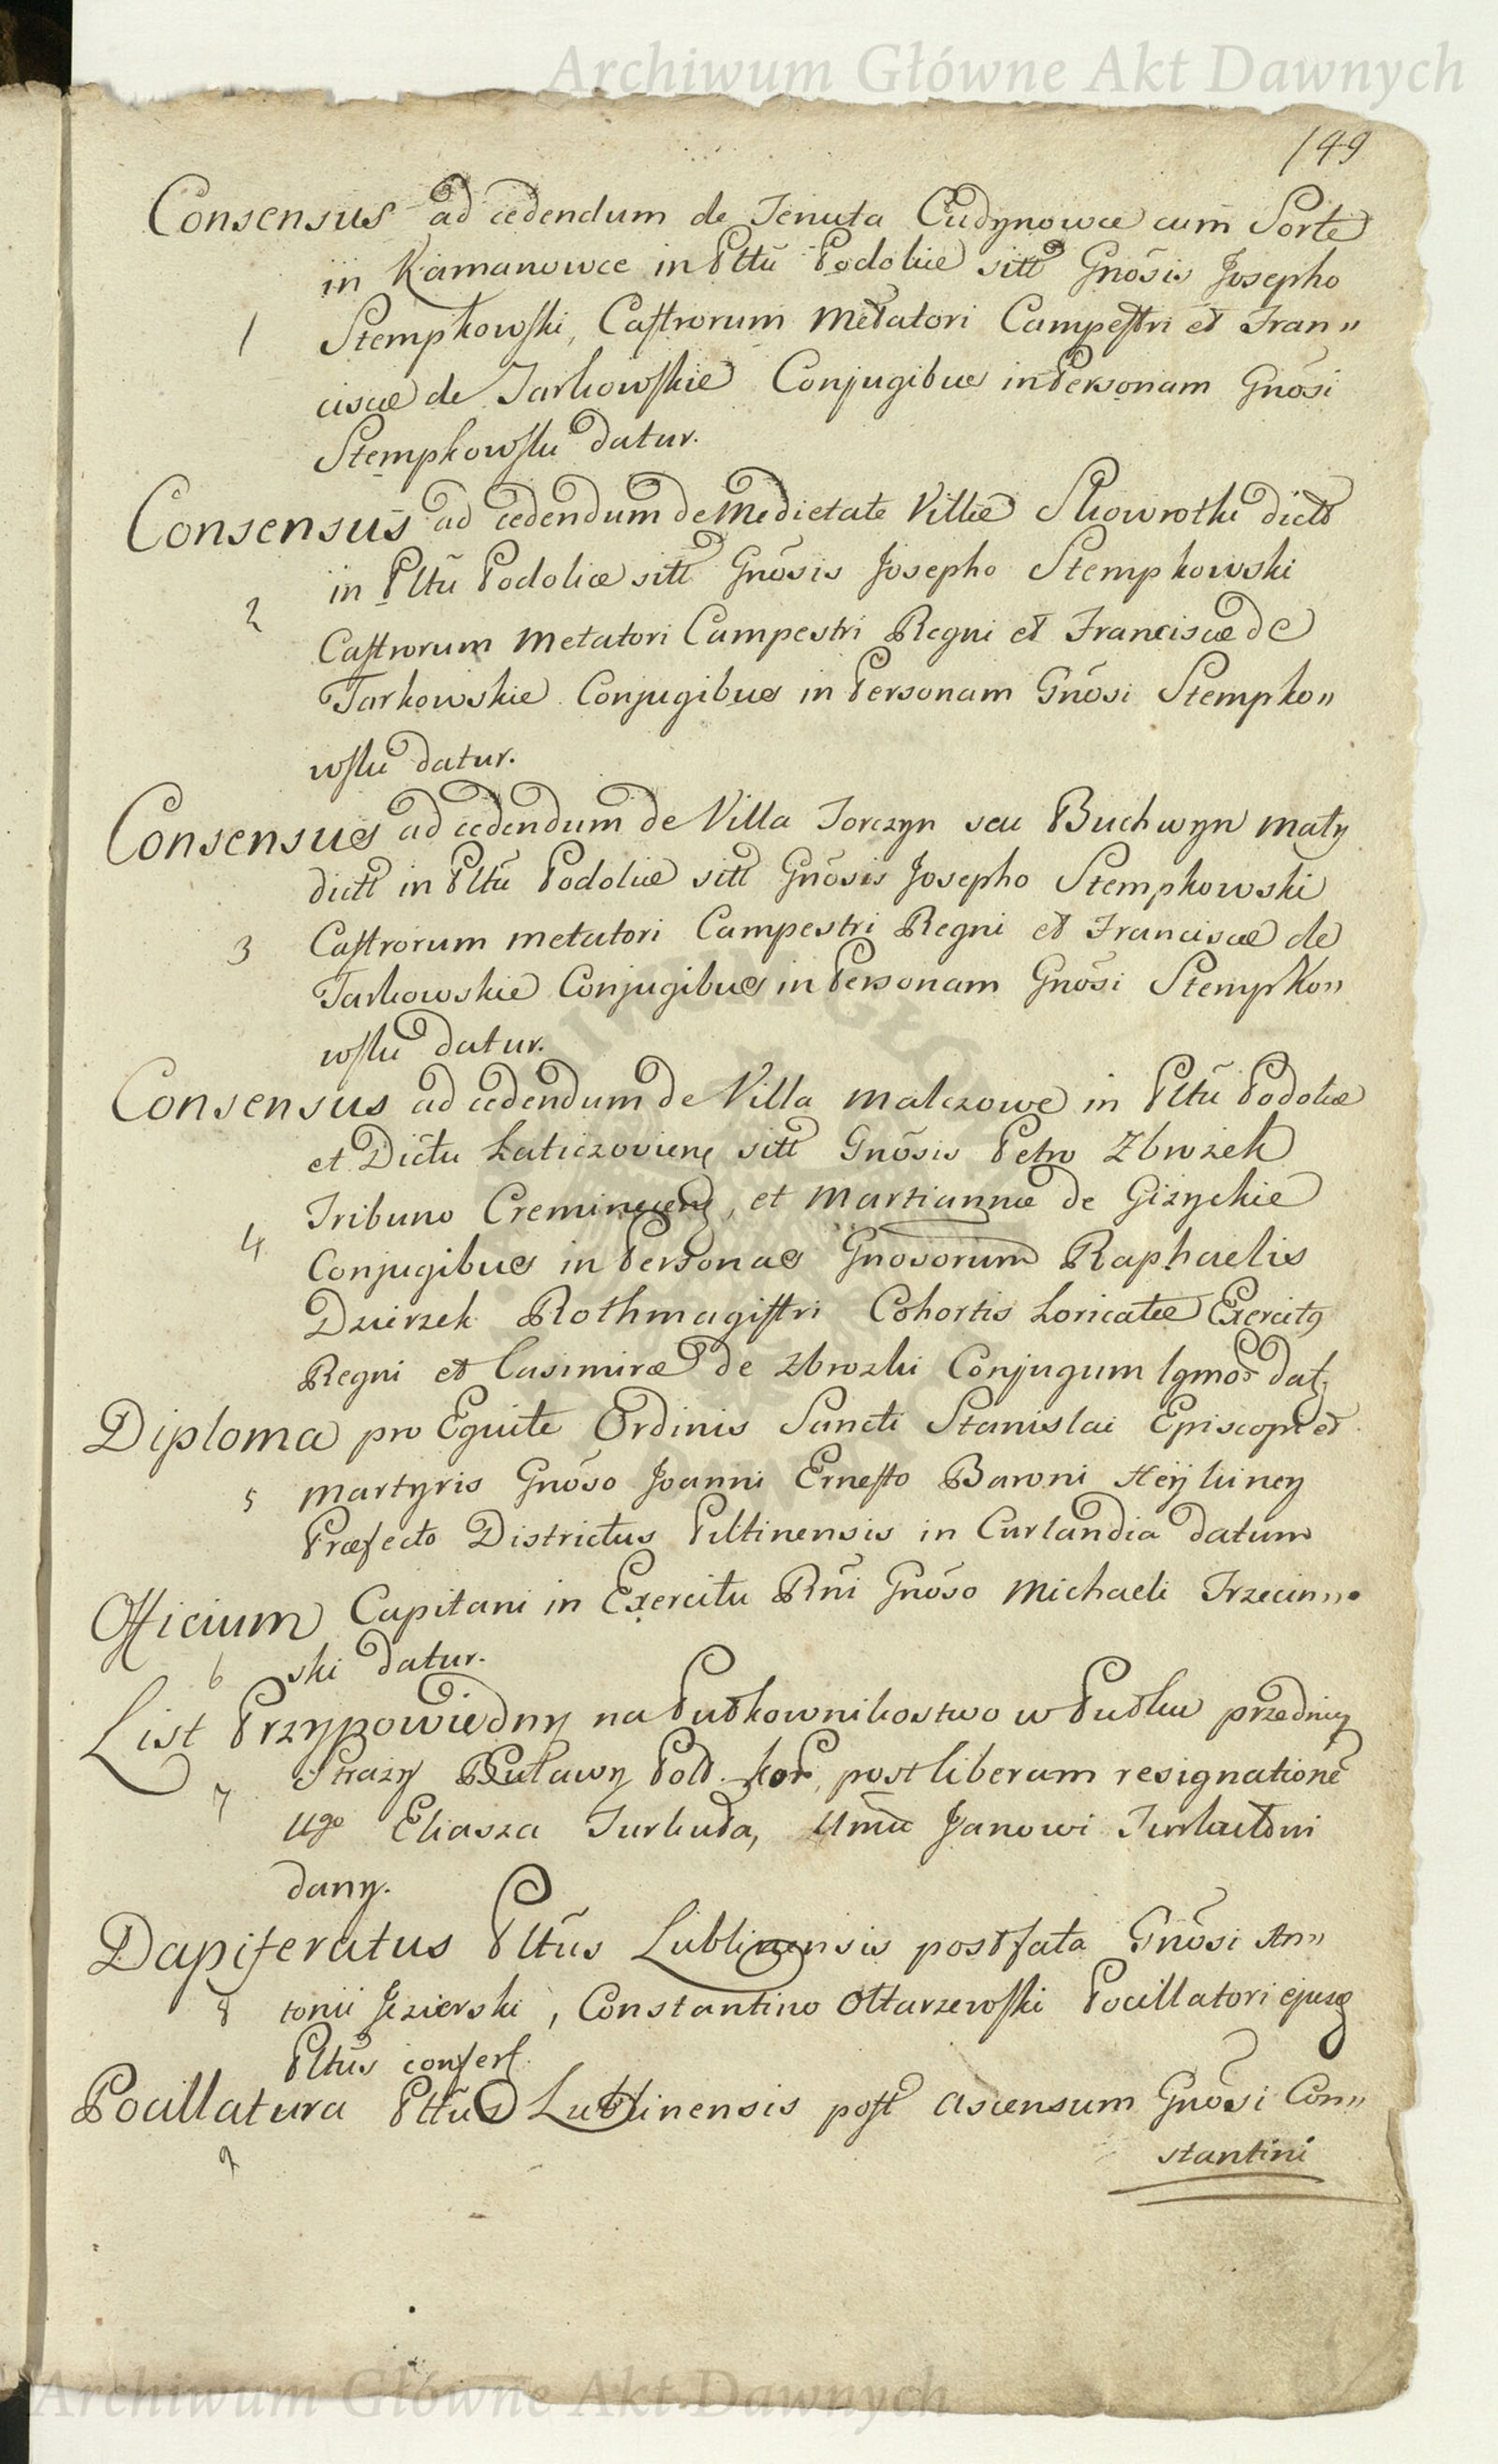 Archiwum Główne Akt Dawnych
149
Consensus ad cedendum de Tenuta Cudynowce cum Sorte
in Kamanowce in Pttũ Podoliæ sitt Gnõsis Josepho
1 Stempkowski, Castrorum Metatori Campestri et Fran„
ciscæ de Tarkowskie Conjugibus in Personam Gnõsi
Stempkowski datur.
Consensus ad cedendum de Medietate Villæ Skowrotki dictæ
in Pltũ Podoliæ sitt Gnõsis Josepho Stempkowski
2 Castrorum Metatori Campestri Regni et Franciscæ de
Tarkowskie Conjugibus in Personam Gnõsi Stempko„
wski datur.
Consensus ad cedendum de Villa Torczyn seu Buchwyn mały
dictt in Pltũ Podoliæ sitt Gnõsis Josepho Stempkowski
3 Castrorum metatori Campestri Regni et Franciscæ de
Tarkowskie Conjugibus in Personam Gnõsi Stempko„
wski datur.
Consensus ad cedendum de Villa Malczowce in Pltũ Podoliæ
et Dictu Laticzovieñ sitt Gnõsis Petro Zbrożek
Tribuno Cremineceñ, et Martiannæ de Giżyckie
4 Conjugibus in Personas Gnosorum Raphaelis
Dzierzek Rothmagistri Cohortis Loricatæ Exercitg
Regni et Casimiræ de Zbrozki Conjugum Igmor dat;
Diploma pro Equite Ordinis Sancti Stanislai Episcopi et
5 Martyris Gnõso Joanni Ernesto Baroni Heÿkiney
Præfecto Districtus Piltinensis in Curlandia datum
Officium Capitani in Exercitu Rñi Gnõso Michaeli Trzecin„
6 ski datur.
List Przypowiedny na Pułkownikostwo w Pułku przedniey
7 Strazy Buławy Pol. Kor, post liberam resignationẽ
Ugo Eliasza Turkuła, Umũ Janowi Turkułowi
dany.
Dapiferatus Pltũs Lublinensis post fata Gnõsi An„
8 tonii Jezierski, Constantino Ołtarzewski Pocillatori ejusq
Pltũs confert.
Pocillatura Pltũs Lublinensis post ascensum Gnõsi Con„
9
stantini
Archiwum Główne Akt Dawnych